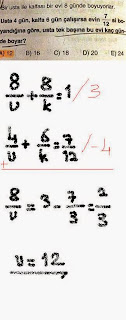 Bir usta ile kalfası bir evi 8 günde boyuyorlar.
Usta 4 gün, kalfa 6 gün çalışırsa evin 7/12 si bo-
yandığına göre, usta tek başına bu evi kaç gün-
de boyar?
A) 12 B) 16 C) 18 D) 20 E) 24
8/u + 8/k = 1 /3
4/u + 6/k = 7/12 /-4
+
8/u = 3 - 7/3 = 2/3
u = 12